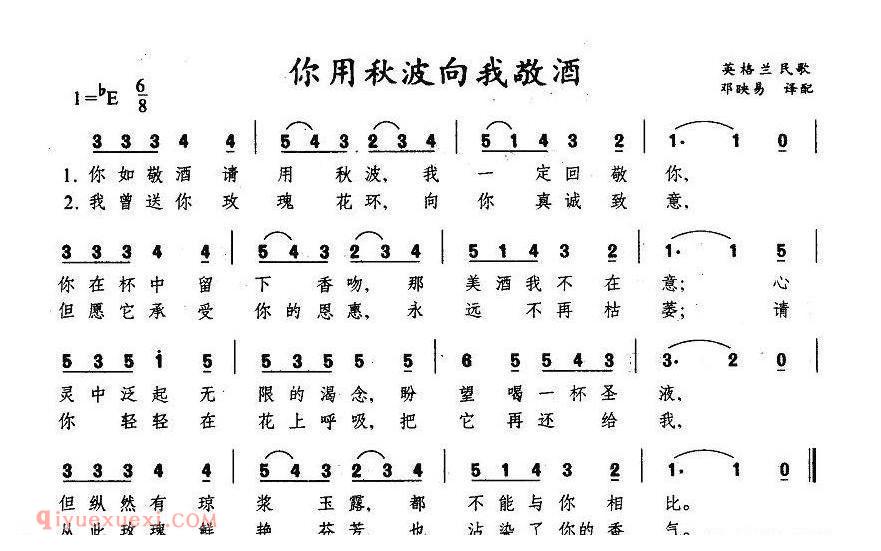 你用秋波向我敬酒
英格兰民歌
1=♭E 6/8
邓映易 译配
3 3 3 4 4 | 5 4 3 2 3 4 | 5 1 4 3 2 | 1· 1 0
1. 你如敬酒请用秋波，我一定回敬你，
2. 我曾送你玫瑰花环，向你真诚致意，
3 3 3 4 4 | 5 4 3 2 3 4 | 5 1 4 3 2 | 1· 1 5
你在杯中留下香吻，那美酒我不在意；心
但愿它承受你的恩惠，永远不再枯萎；请
5 3 5 i 5 | 5 3 5 5 5 | 6 5 5 4 3 | 3· 2 0
灵中泛起无限的渴念，盼望喝一杯圣液，
你轻轻在花上呼吸，把它再还给我，
3 3 3 4 4 | 5 4 3 2 3 4 | 5 1 4 3 2 | 1· 1 0
但纵然有琼浆玉露，都不能与你相比。
从此玫瑰鲜艳芬芳，也沾染了你的香气。
qiyuexuexi.com